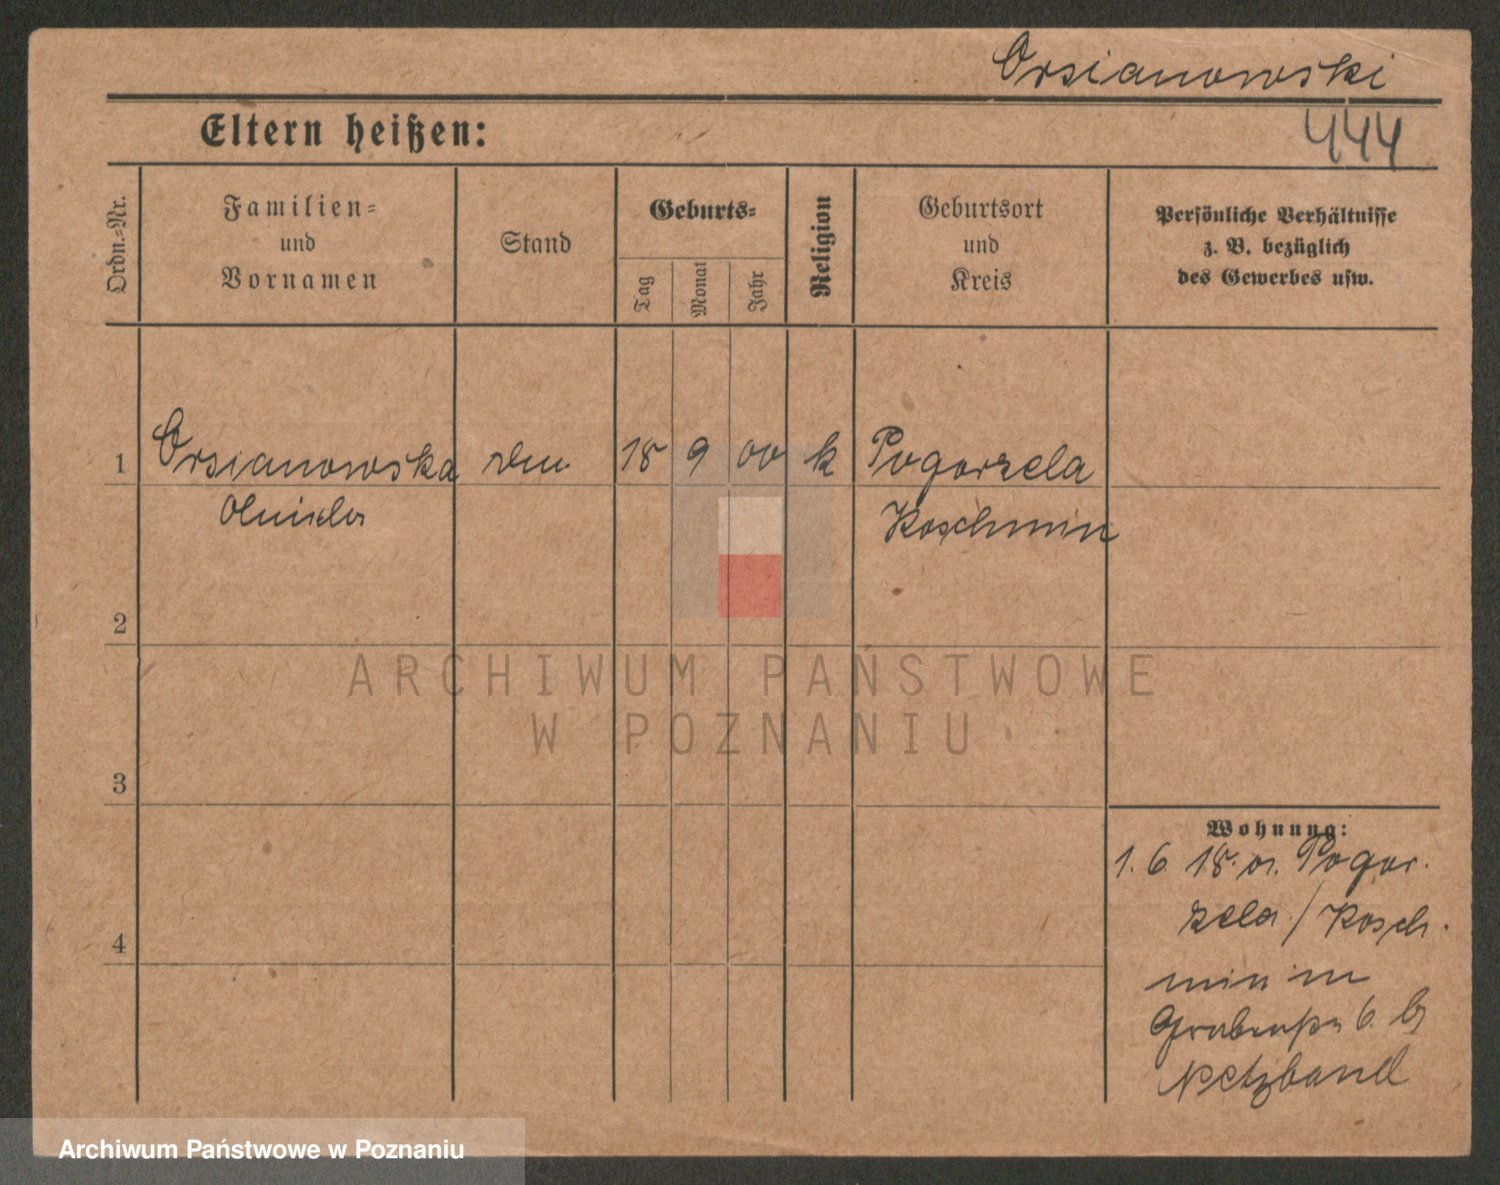 Orsianowski
Eltern heißen:
444
Ordn.-Nr.
Familien-
und
Vornamen
Stand
Geburts-
Tag
Monat
Jahr
Religion
Geburtsort
und
Kreis
Persönliche Verhältnisse
z. B. bezüglich
des Gewerbes usw.
1
Orsianowska
18
9
00
k
Pogorzela
Koschmin
2
3
4
Wohnung:
1. 6. 18. Pogor.
zela / Kosch.
min in
6.
Netzband
ARCHIWUM PAŃSTWOWE
W POZNANIU
Archiwum Państwowe w Poznaniu